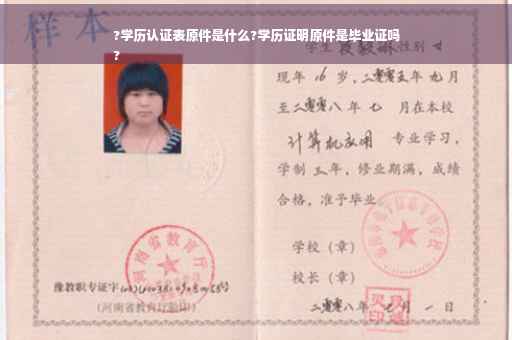 ?学历认证表原件是什么?学历证明原件是毕业证吗
?
样本
学生 性别 女
现年 16 岁,二零零五年 九月
至二零零八年 七 月在本校
计算机应用 专业学习,
学制 三年,修业期满,成绩
合格,准予毕业
学校(章)
校长(章)
二零零八年 月 一 日
河南省教育厅
豫教职专证字
(河南省教育厅验印)